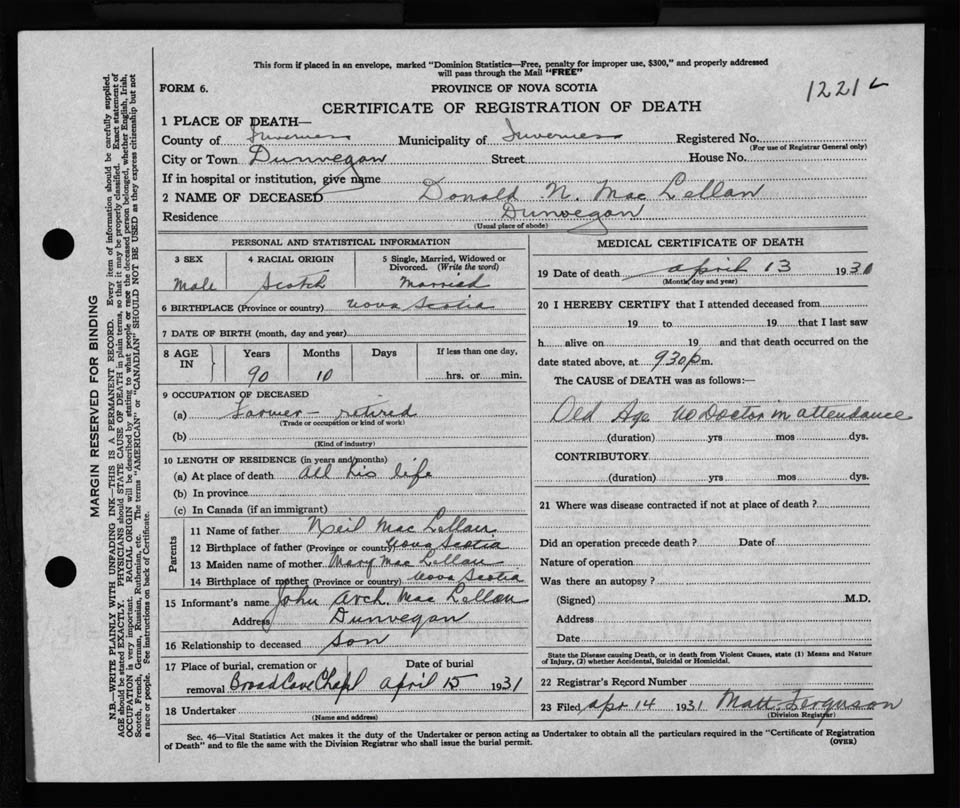 This form if placed in an envelope, marked "Dominion Statistics—Free, penalty for improper use, $300," and properly addressed
will pass through the Mail "FREE"
FORM 6.
PROVINCE OF NOVA SCOTIA
1221
CERTIFICATE OF REGISTRATION OF DEATH
1 PLACE OF DEATH—
County of Inverness Municipality of Inverness Registered No.
(For use of Registrar General only)
City or Town Dunvegan Street House No.
If in hospital or institution, give name
2 NAME OF DECEASED Donald N. Mac Lellan
Residence Dunvegan
(Usual place of abode)
PERSONAL AND STATISTICAL INFORMATION
3 SEX 4 RACIAL ORIGIN 5 Single, Married, Widowed or
Divorced. (Write the word)
Male Scotch Married
6 BIRTHPLACE (Province or country) Nova Scotia
7 DATE OF BIRTH (month, day and year)
8 AGE IN Years Months Days If less than one day,
90 10 hrs. or min.
9 OCCUPATION OF DECEASED
(a) Farmer — retired
(Trade or occupation or kind of work)
(b)
(Kind of industry)
10 LENGTH OF RESIDENCE (in years and months)
(a) At place of death all his life
(b) In province
(c) In Canada (if an immigrant)
Parents
11 Name of father Neil Mac Lellan
12 Birthplace of father (Province or country) Nova Scotia
13 Maiden name of mother Mary Mac Lellan
14 Birthplace of mother (Province or country) Nova Scotia
15 Informant's name John Arch. Mac Lellan
Address Dunvegan
16 Relationship to deceased Son
17 Place of burial, cremation or Date of burial
removal Broad Cove Chapl April 15 1931
18 Undertaker
(Name and address)
MEDICAL CERTIFICATE OF DEATH
19 Date of death April 13 1931
(Month, day and year)
20 I HEREBY CERTIFY that I attended deceased from
19 to 19 that I last saw
h alive on 19 and that death occurred on the
date stated above, at 930p m.
The CAUSE of DEATH was as follows:—
Old Age No Doctor in attendance
(duration) yrs mos dys.
CONTRIBUTORY
(duration) yrs mos dys.
21 Where was disease contracted if not at place of death?
Did an operation precede death? Date of
Nature of operation
Was there an autopsy?
(Signed) M.D.
Address
Date
State the Disease causing Death, or in death from Violent Causes, state (1) Means and Nature
of Injury, (2) whether Accidental, Suicidal or Homicidal.
22 Registrar's Record Number
23 Filed Apr 14 1931 Matt. Ferguson
(Division Registrar)
Sec. 46—Vital Statistics Act makes it the duty of the Undertaker or person acting as Undertaker to obtain all the particulars required in the "Certificate of Registration
of Death" and to file the same with the Division Registrar who shall issue the burial permit.
(OVER)
MARGIN RESERVED FOR BINDING
N.B.—WRITE PLAINLY WITH UNFADING INK—THIS IS A PERMANENT RECORD. Every item of information should be carefully supplied.
AGE should be stated EXACTLY. PHYSICIANS should STATE CAUSE OF DEATH in plain terms, so that it may be properly classified. Exact statement of
OCCUPATION is very important. RACIAL ORIGIN will be described by stating to what people or race the deceased person belonged, whether English, Irish,
Scotch, French, German, Russian, Ruthenian, etc. The terms "AMERICAN" or "CANADIAN" SHOULD NOT BE USED as they express citizenship but not
a race or people. See instructions on back of Certificate.